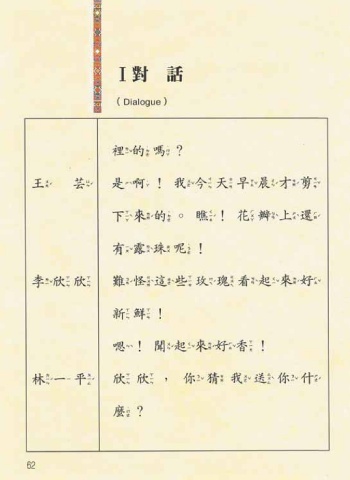 I 對 話
( Dialogue )
裡的嗎?
王 芸 是啊!我今天早晨才剪
下來的。瞧!花瓣上還
有露珠呢!
李欣欣 難怪這些玫瑰看起來好
新鮮!
嗯!聞起來好香!
林一平 欣欣,你猜我送你什
麼?
62